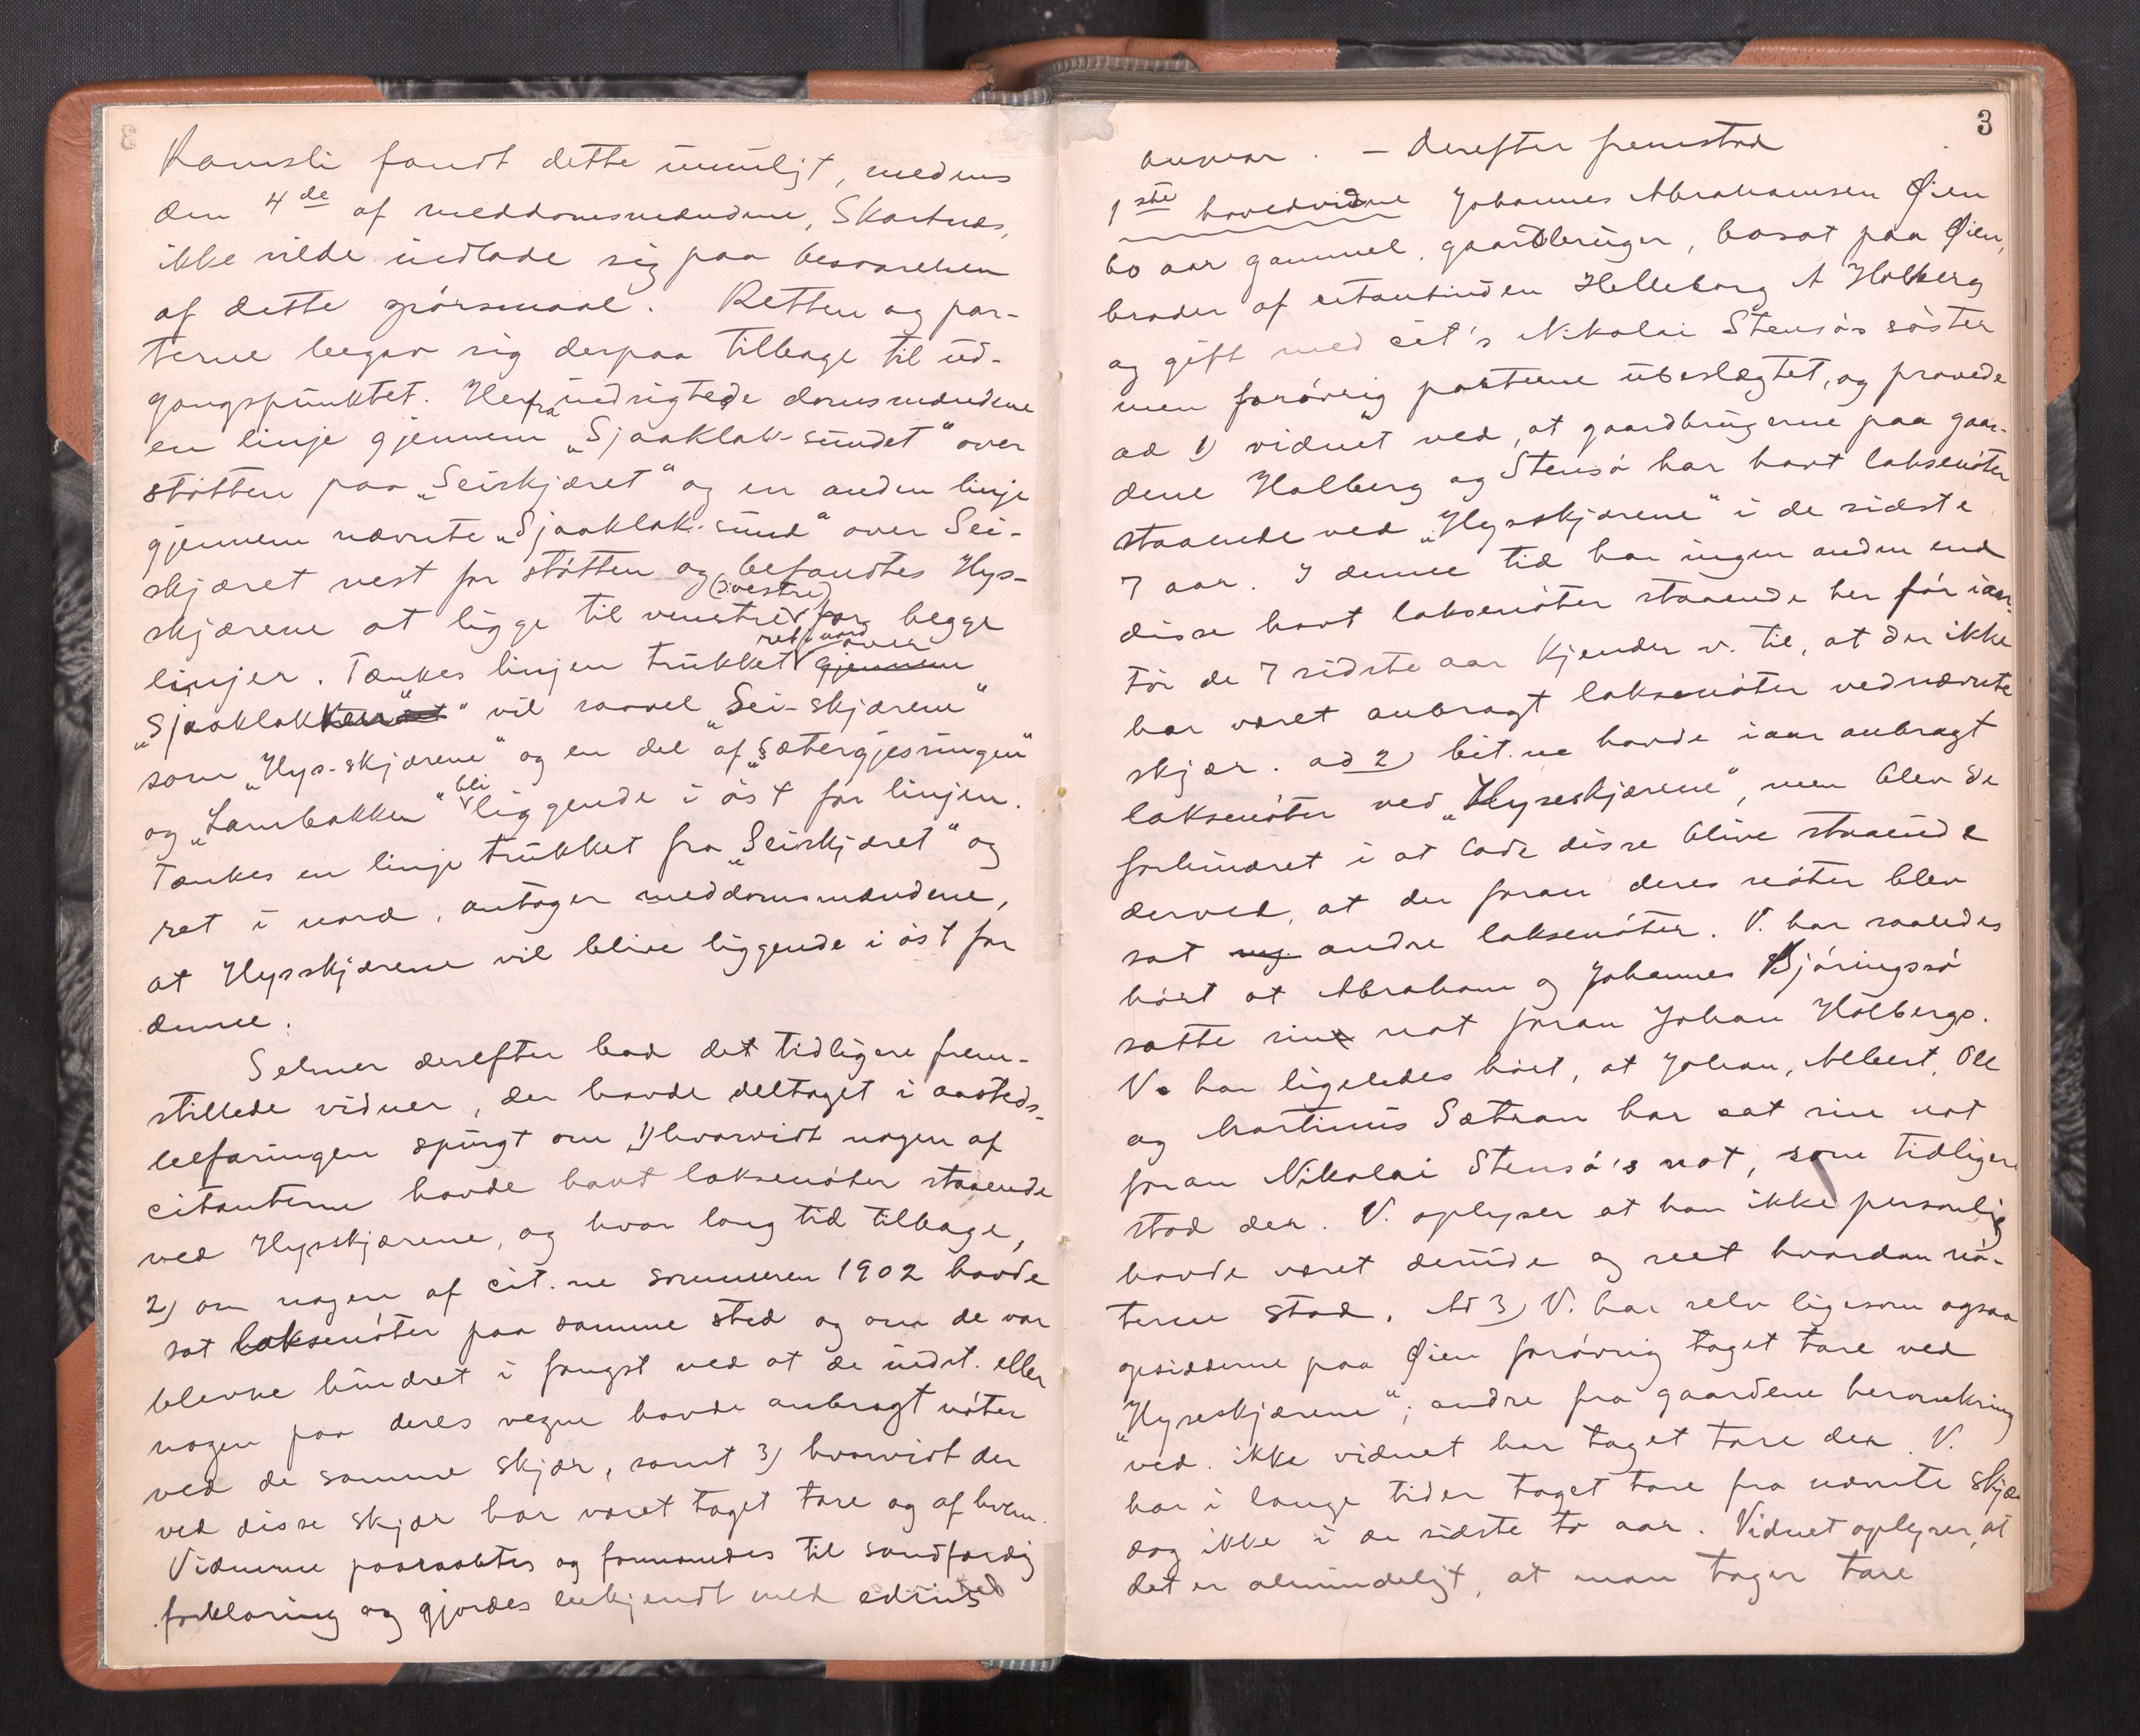 Ramsli fandt dette umuligt, medens
den 4de af meddomsmændene, Skartnes,
ikke vilde indlade sig paa besvarelsen
af dette spörsmaal. Retten og par-
terne begav sig derpaa tilbage til ud-
gangspunktet. Herfra indsigtede domsmændene
en linje gjennem „Sjaaklak-sundet“ over
stötten paa „Seiskjæret“ og en anden linje
gjennem nævnte „Sjaaklak-sund“ over Sei-
skjæret vest for stötten og befandtes Hys-
skjærene at ligge til venstre (ɔ: vestre) for begge
linjer. Tænkes linjen trukket ret i nord over gjennem
„Sjaaklakken“ vil saavel „Sei-skjærene“
som „Hys-skjærene“ og en del af „Sætergjesingen“
og „Lambakken“ bli liggende i öst for linjen.
Tænkes en linje trukket fra „Seiskjæret“ og
ret i nord, antager meddomsmændene,
at Hysskjærene vil blive liggende i öst for
denne.
Selmer derefter bad det tidligere frem-
stillede vidner, der havde deltaget i aasteds-
befaringen spurgt om 1) hvorvidt nogen af
citanterne havde havt laksenöter staaende
ved Hysskjærene, og hvor lang tid tilbage,
2) om nogen af cit.ne sommeren 1902 havde
sat laksenöter paa samme sted og om de var
blevne hindret i fangst ved at de indst. eller
nogen paa deres vegne havde anbragt nöter
ved de samme skjær, samt 3) hvorvidt der
ved disse skjær har været taget tare og af hvem.
Vidnerne paaraabtes og formanedes til sandfærdig
forklaring og gjordes bekjendt med edens
3
ansvar. – Derefter fremstod
1ste hovedvidne Johannes Abrahamsen Øien
60 aar gammel, gaardbruger, bosat paa Øien,
broder af citantinden Helleborg A Holberg
og gift med cit's Nikolai Stensö's söster
men forövrig parterne ubeslægtet, og provede
ad 1) vidnet ved, at gaardbrugerne paa gaar-
dene Halberg og Stensö har havt laksenöter
staaende ved „Hysskjærene“ i de sidste
7 aar. I denne tid har ingen anden end
disse havt laksenöter staaende her för iaar.
För de 7 sidste aar kjender v. til, at der ikke
har været anbragt laksenöter ved nævnte
skjær. ad 2) Cit.ne havde iaar anbragt
laksenöter ved „Hyseskjærene“, men blev de
forhindret i at lade disse blive staaende
derved, at der foran deres nöter blev
sat andre laksenöter. V. har saaledes
hört at Abraham og Johannes Björingsö
satte sin not foran Johan Holbergs.
V. har ligeledes hört, at Johan, Albert, Ole
og Martinus Sætran har sat sin not
foran Nikolai Stensö's not, som tidligere
stod der. V. oplyser at han ikke personlig
havde været derude og seet hvordan nö-
terne stod. Ad 3) V. har selv ligesom ogsaa
opsidderne paa Øien forövrig taget tare ved
„Hyseskjærene“; andre fra gaardene heromkring
ved ikke vidnet har taget tare der. V.
har i lange tider taget tare fra nævnte skjær
dog ikke i de sidste to aar. Vidnet oplyser, at
det er almindeligt, at man tager tare